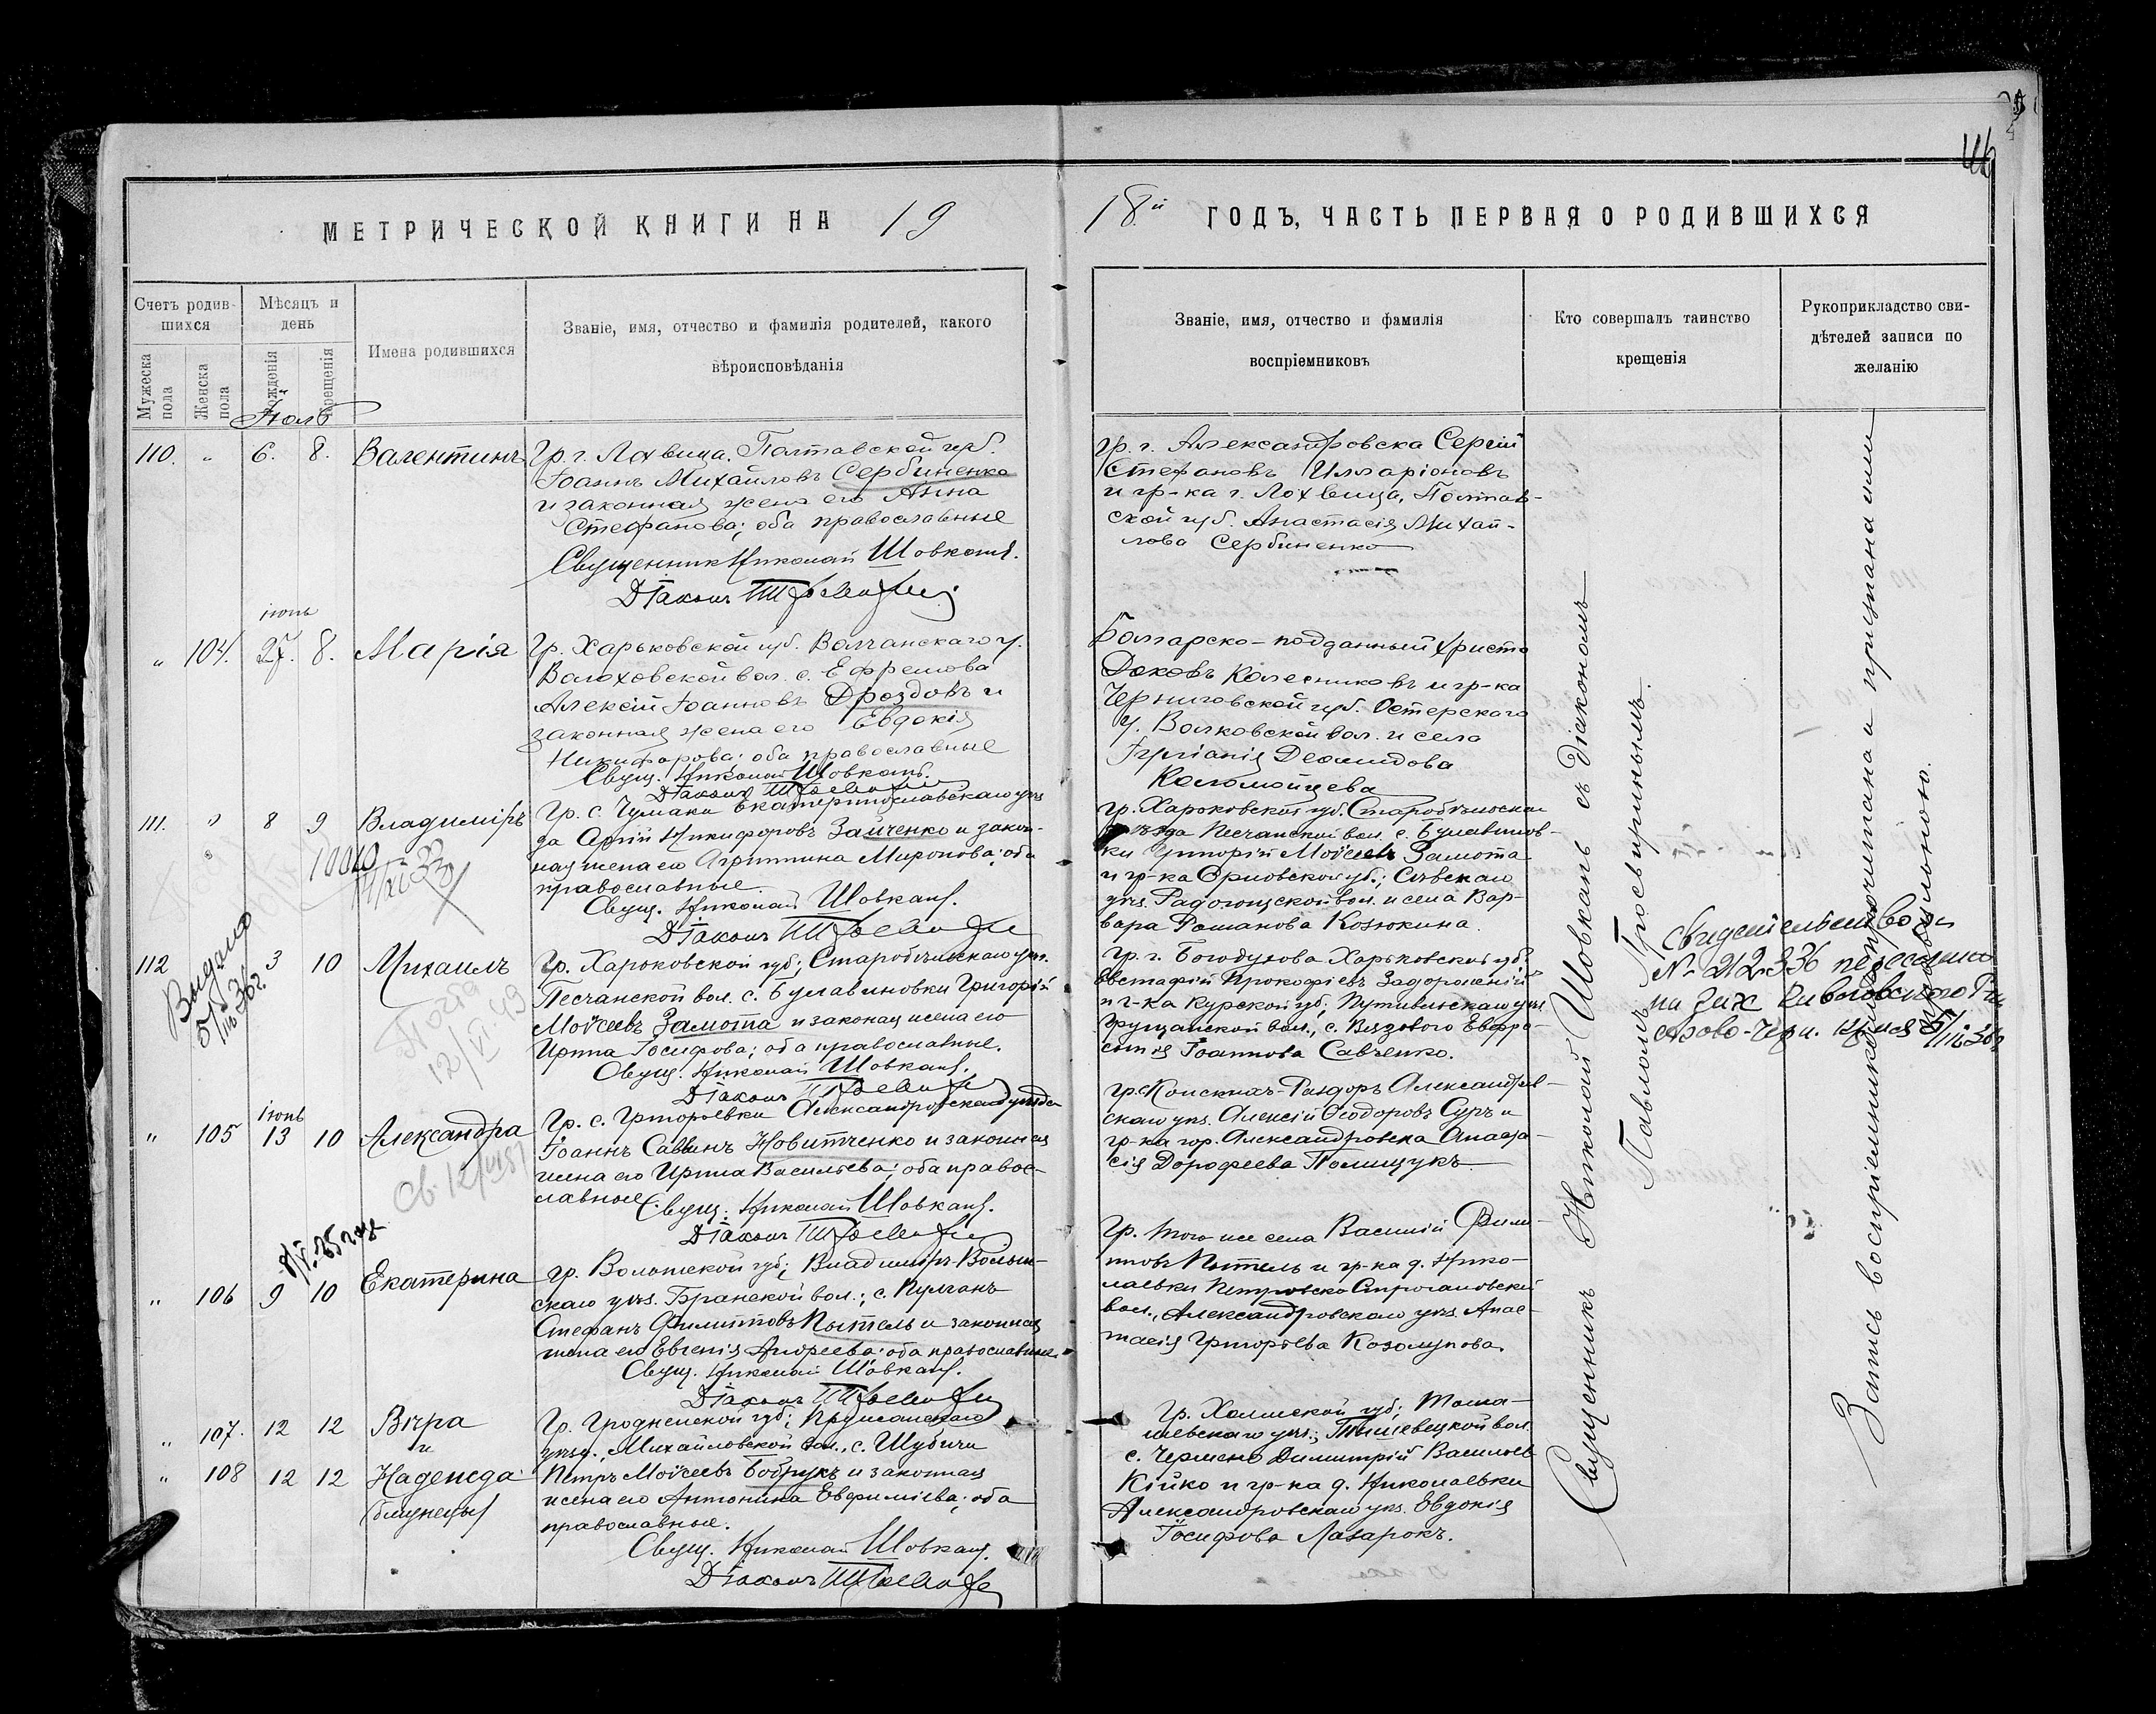 46
МЕТРИЧЕСКОЙ КНИГИ НА 19
18й ГОДЪ, ЧАСТЬ ПЕРВАЯ О РОДИВШИХСЯ
Счетъ родив-
шихся
Мѣсяцъ и
день
Мужеска
пола
Женска
пола
Рожденія
Крещенія
Имена родившихся
Званіе, имя, отчество и фамилія родителей, какого
вѣроисповѣданія
Званіе, имя, отчество и фамилія
воспріемниковъ
Кто совершалъ таинство
крещенія
Рукоприкладство сви-
дѣтелей записи по
желанію
110. " 6. 8. Валентинъ
Гр. г. Лохвица, Полтавской губ.
Іоаннъ Михайловъ Сербиненко
и законная жена его Анна
Стефанова; оба православные
Священникъ Николай Шовкапъ.
Діаконъ
Гр. г. Александровска Сергій
Стефановъ Илларіоновъ
и гр-ка г. Лохвица, Полтав-
ской губ. Анастасія Михай-
лова Сербиненко
іюнь
" 104. 27. 8. Марія
Гр. Харьковской губ. Волчанскаго у.
Волоховской вол. с. Ефремова
Алексій Іоанновъ Дроздовъ и
законная жена его Евдокія
Никифорова; оба православные
Свящ. Николай Шовкапъ.
Діаконъ
Болгарско-подданный Христо
Доковъ Колесниковъ и гр-ка
Черниговской губ. Остерского
у. Волковской вол. и села
Іуліанія Деомидова
Коломойцева
111. " 8 9 Владиміръ
Гр. с. Чумаки Екатеринославскаго уѣз
да Сергій Никифоровъ Зайченко и закон-
ная жена его Агриппина Миронова; оба
православные.
Свящ. Николай Шовкапъ.
Діаконъ
гр. Харьковской губ. Старобѣльскаго
уѣзда Песчанской вол. с. Булавинов-
ки Григорій Моѵсеевъ Замота
и гр-ка Орловской губ.; Сѣвскаго
уѣз. Радогощской вол. и села Вар-
вара Романова Козюкина.
112 3 10 Михаилъ
Гр. Харьковской губ.; Старобѣльскаго уѣз.
Песчанской вол. с. Булавиновки Григорій
Моѵсеевъ Замота и законая жена его
Ирина Іосифова; оба православные.
Свящ. Николай Шовкапъ.
Діаконъ
Гр. г. Богодухова Харьковской губ.
Евстафій Прокофіевъ Задорожній
и г-ка Курской губ; Путивльскаго уѣз.
Грузчанской вол., с. Вязового Евфро-
синія Іоаннова Савченко.
Выдано
12/VI 49
іюнь
" 105 13 10 Александра
Гр. с. Григорьевки Александровскаго уѣзда
Іоаннъ Саввинъ Новитченко и законная
жена его Ирина Васильева; оба право-
славные. Свящ. Николай Шовкапъ.
Діаконъ
гр. Конскихъ-Раздоръ Александров-
скаго уѣз. Алексій Ѳеодоровъ Суръ и
гр-ка гор. Александровска Анаста-
сія Дорофеева Полищукъ.
" 106 9 10 Екатерина
гр. Волынской губ; Владиміръ-Волын-
скаго уѣз. Бранской вол.; с. Пулганъ
Стефанъ Филипповъ Пытель и законная
жена его Евгенія Андреева; оба православные.
Свящ. Николай Шовкапъ.
Діаконъ
Гр. того же села Василій Фили-
пповъ Пытель и гр-ка д. Нико-
лаевки Петровско
вол., Александровскаго уѣз. Анас-
тасія Григорьева Козолупова.
" 107. 12 12 Вѣра
и
" 108 12 12 Надежда
(близнецы)
Гр. Гродненской губ; Пружанскаго
уѣзд., Михайловской вол., с. Шубичи
Петръ Моѵсеевъ Бобрукъ и законная
жена его Антонина Евфиміева; оба
православные.
Свящ. Николай Шовкапъ.
Діаконъ
Гр. Холмской губ; Тома-
шевскаго уѣз.; Тышевецкой вол.
с. Чермено Димитрій Васильев
Кійко и гр-ка д. Николаевки
Александровскаго уѣз. Евдокія
Іосифова Лазарокъ.
Священникъ Николай Шовкапъ съ діакономъ
Павломъ Просвиринымъ.
Запись воспріемниками прочитана и признана ими
правильною.
Свидетельство
№ 212336